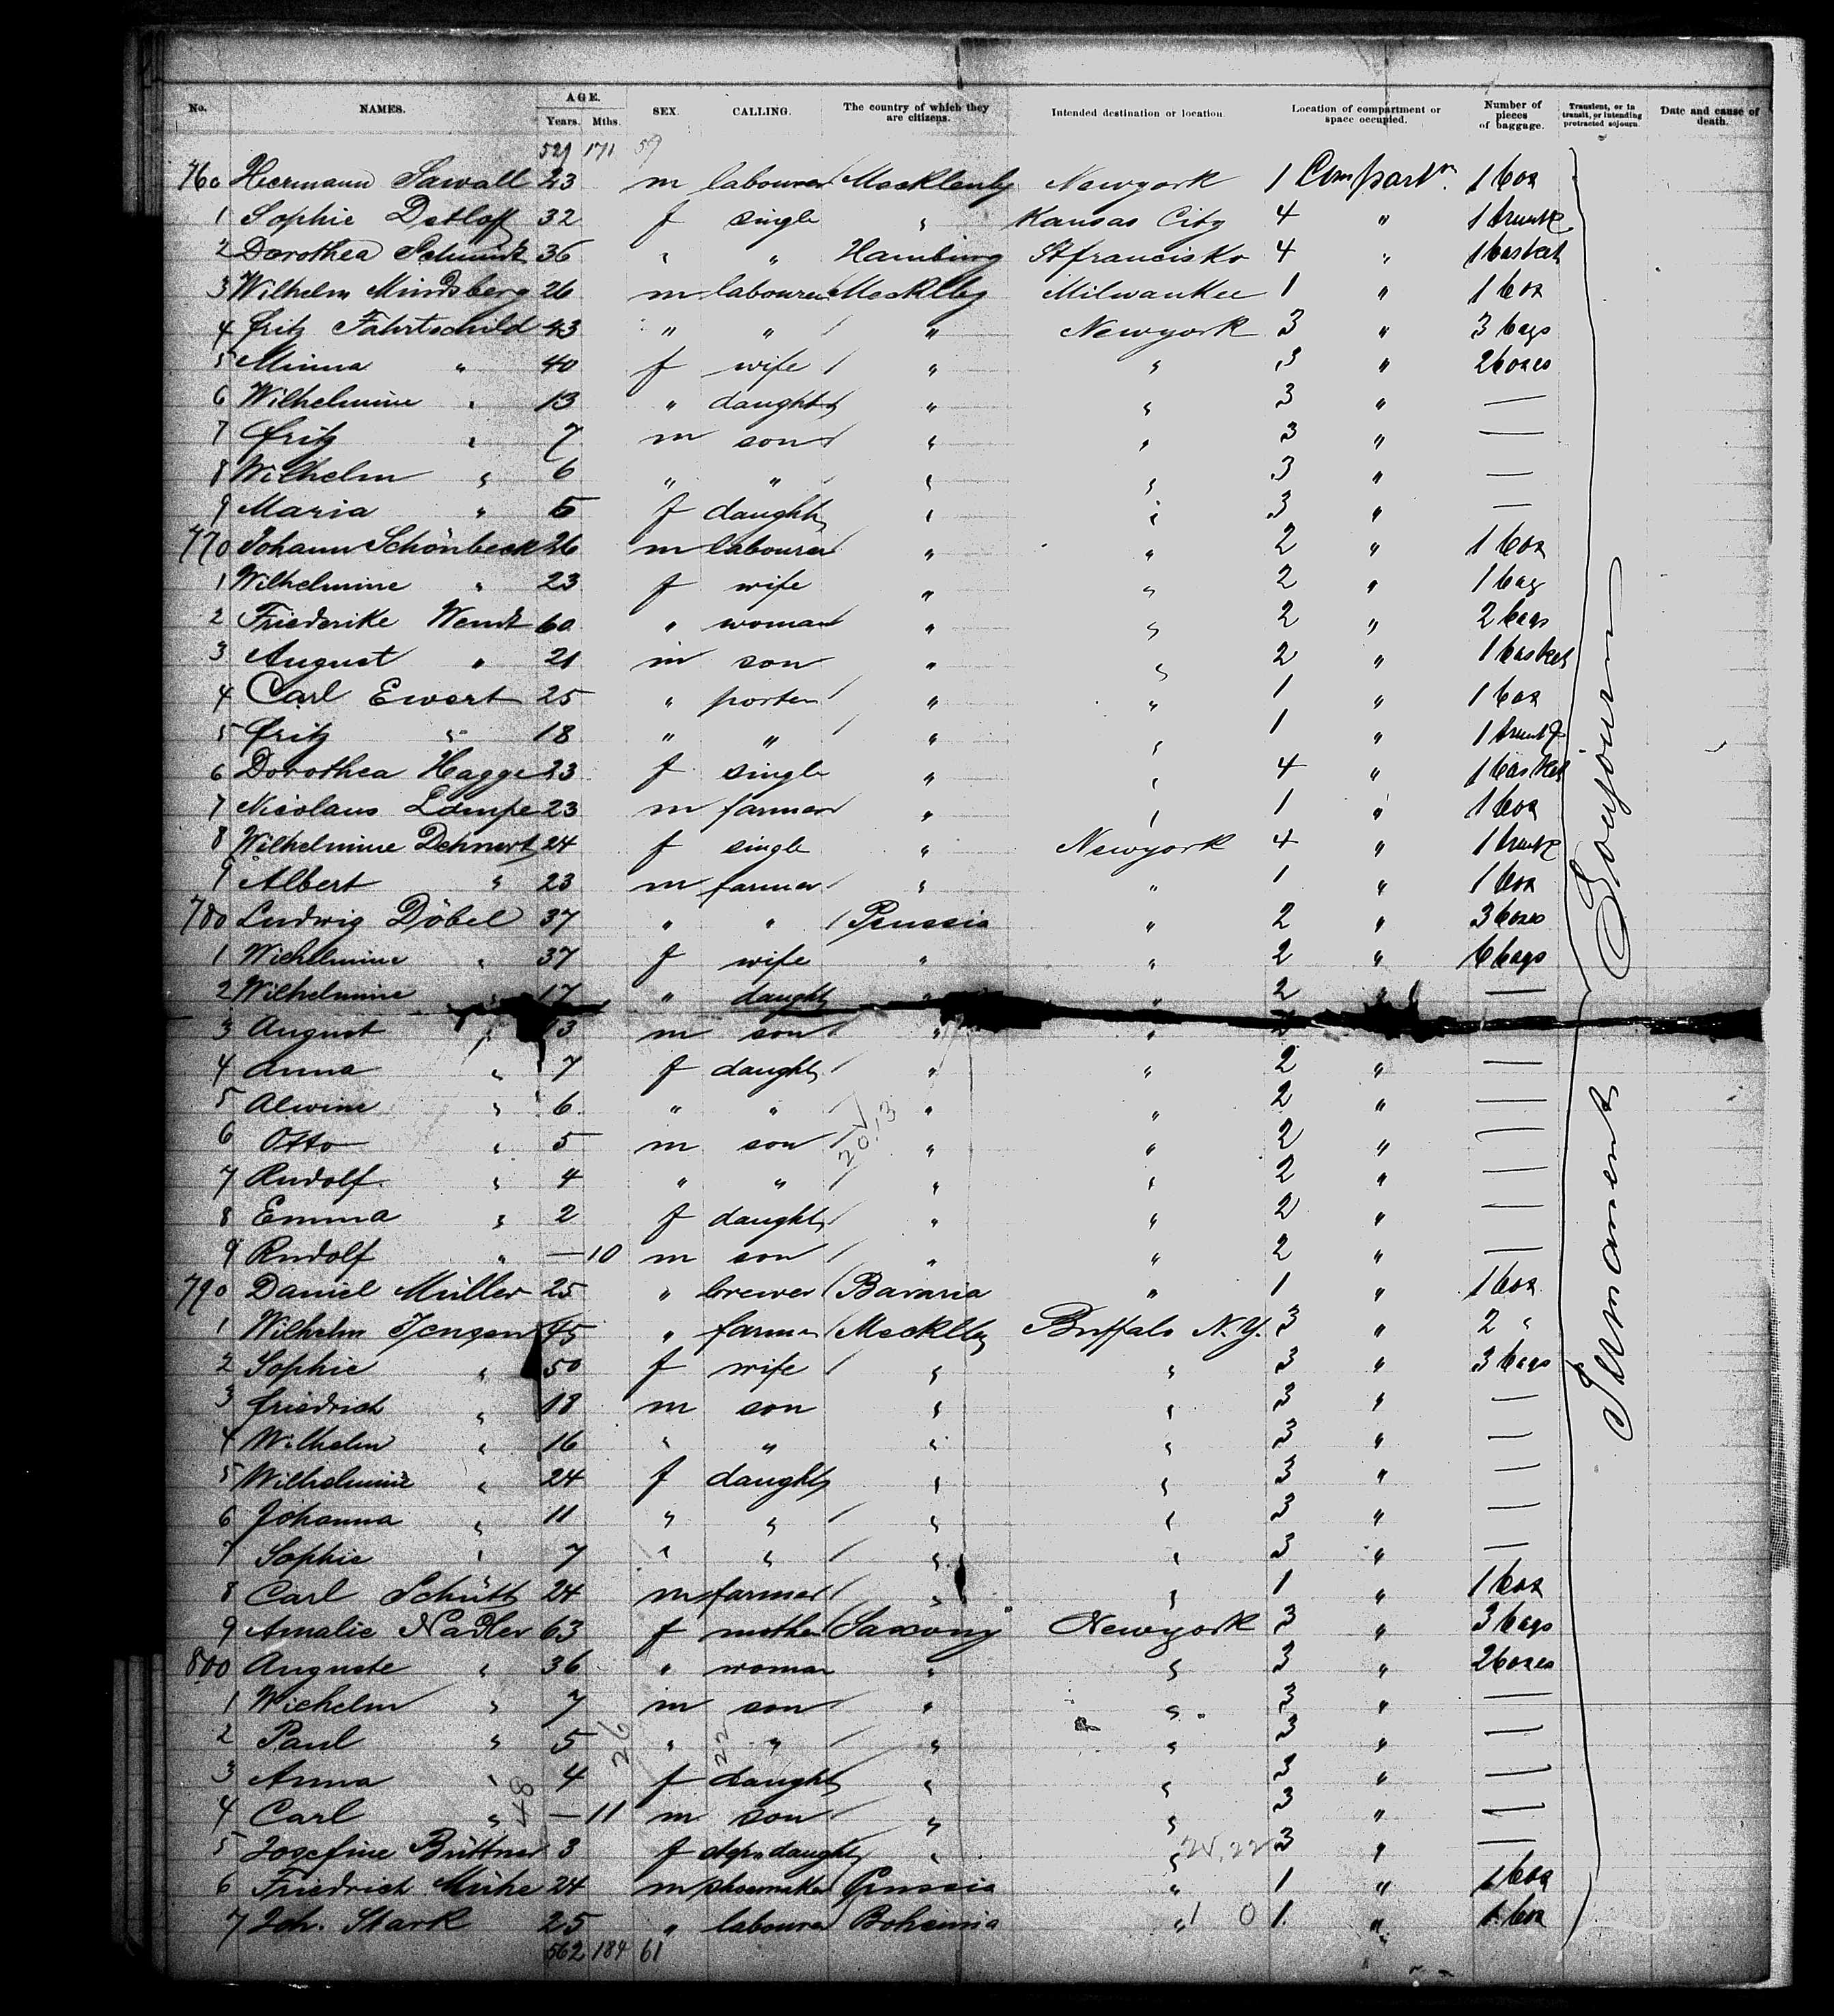 No. NAMES. AGE. Years. Mths. SEX. CALLING. The country of which they are citizens. Intended destination or location Location of compartment or space occupied. Number of pieces of baggage. Transient, or in transit, or intending protracted sojourn. Date and cause of death.
529 171 59
760 Hermann Sawall 23 m labourer Mecklenbg Newyork 1 Compartm. 1 box
1 Sophie Detloff 32 f single " Kansas City 4 " 1 trunk
2 Dorothea Schmidt 36 " " Hamburg Stfrancisko 4 " 1 basket
3 Wilhelm Mindsberg 26 m labourer Mecklbg Milwaukee 1 " 1 box
4 Fritz Fahrtschild 43 " " " Newyork 3 " 3 bags
5 Minna " 40 f wife " " 3 " 2 boxes
6 Wilhelmine " 13 " daught " " 3 " —
7 Fritz " 7 m son " " 3 " —
8 Wilhelm " 6 " " " " 3 " —
9 Maria " 5 f daught " " 3 " —
770 Johann Schönbeck 26 m labourer " " 2 " 1 box
1 Wilhelmine " 23 f wife " " 2 " 1 bag
2 Friederike Wendt 60 " woman " " 2 " 2 bags
3 August " 21 m son " " 2 " 1 basket
4 Carl Ewert 25 " porter " " 1 " 1 box
5 Fritz " 18 " " " " 1 " 1 trunk
6 Dorothea Hagge 23 f single " " 4 " 1 basket
7 Nicolaus Lampe 23 m farmer " " 1 " 1 box
8 Wilhelmine Dehnert 24 f single " Newyork 4 " 1 trunk
9 Albert " 23 m farmer " " 1 " 1 box
780 Ludwig Döbel 37 " " Prussia " 2 " 3 boxes
1 Wilhelmine " 37 f wife " " 2 " 6 bags
2 Wilhelmine " 17 " daught " " 2 " —
3 August " 13 m son " " 2
4 Anna " 7 f daught " " 2 " —
5 Alwine " 6 " " " " 2 " —
6 Otto " 5 m son " " 2 " —
7 Rudolf " 4 " " " " 2 " —
8 Emma " 2 f daught " " 2 " —
9 Rudolf " — 10 m son " " 2 " —
790 Daniel Müller 25 " brewer Bavaria " 1 " 1 box
1 Wilhelm Jensen 45 " farmer Mecklbg Buffalo N.Y. 3 " 2 "
2 Sophie " 50 f wife " " 3 " 3 bags
3 Friedrich " 18 m son " " 3 " —
4 Wilhelm " 16 " " " " 3 " —
5 Wilhelmine " 24 f daught " " 3 " —
6 Johanna " 11 " " " " 3 " —
7 Sophie " 7 " " " " 3 " —
8 Carl Schütt 24 m farmer " " 1 " 1 box
9 Amalie Nadler 63 f mother Saxony Newyork 3 " 3 bags
800 Auguste " 36 " woman " " 3 " 2 boxes
1 Wilhelm " 7 m son " " 3 " —
2 Paul " 5 " " " " 3 " —
3 Anna " 4 f daught " " 3 " —
4 Carl " — 11 m son " " 3 " —
5 Josefine Büttner 3 f daught " " 3 " —
6 Friedrich Mühe 24 m shoemaker Prussia " 1 " 1 box
7 Joh. Stark 25 " labourer Bohemia " 1 " 1 box
562 184 61
Permanent Soujourn